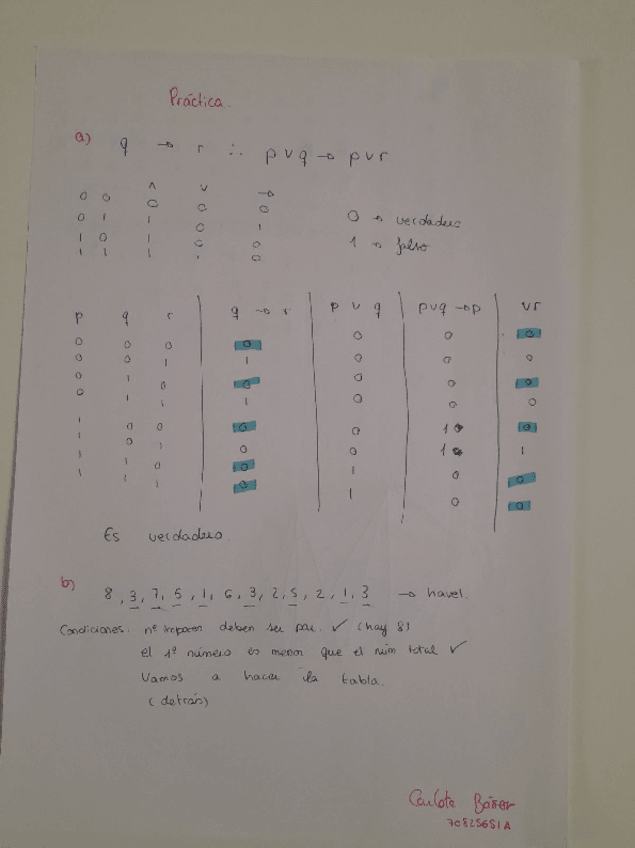 Práctica.
a) q → r ∴ p v q → p v r
∧ v →
0 0 0 0 0
0 1 1 0 1
1 0 1 0 0
1 1 1 0
0 → verdadero
1 → falso
p q r q → r p v q p v q → p v r
0 0 0 0 0 0 0
0 0 1 1 0 0 0
0 1 0 0 0 0 0
0 1 1 1 0 0 0
1 0 0 0 0 1 0
1 0 1 0 0 1 1
1 1 0 0 1 0 0
1 1 1 0 1 0 0
Es verdadero.
b) 8, 3, 7, 5, 1, 6, 3, 2, 5, 2, 1, 3 → havel.
Condiciones: nº impares deben ser par. ✓ (hay 8)
el 1º número es menor que el núm total ✓
Vamos a hacer la tabla.
(detrás)
Carlota